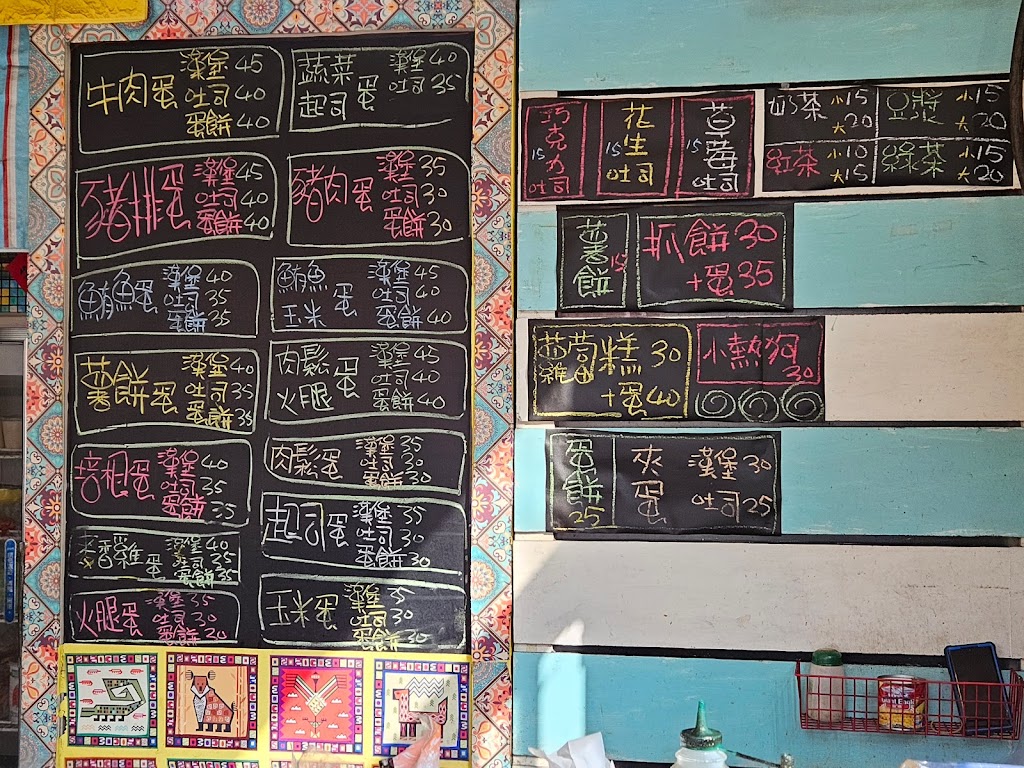 牛肉蛋 漢堡 45
吐司 40
蛋餅 40
蔬菜起司蛋 漢堡 40
吐司 35
豬排蛋 漢堡 45
吐司 40
蛋餅 40
豬肉蛋 漢堡 35
吐司 30
蛋餅 30
鮪魚蛋 漢堡 40
吐司 35
蛋餅 35
鮪魚玉米蛋 漢堡 45
吐司 40
蛋餅 40
薯餅蛋 漢堡 40
吐司 35
蛋餅 35
肉鬆火腿蛋 漢堡 45
吐司 40
蛋餅 40
培根蛋 漢堡 40
吐司 35
蛋餅 35
肉鬆蛋 漢堡 35
吐司 30
蛋餅 30
起司蛋 漢堡 35
吐司 30
蛋餅 30
香雞蛋 漢堡 40
吐司 35
蛋餅 35
火腿蛋 漢堡 35
吐司 30
蛋餅
玉米蛋 漢堡 35
吐司 30
蛋餅 30
巧克力吐司 15
花生吐司 15
草莓吐司 15
奶茶 小15
大20
豆漿 小15
大20
紅茶 小10
大15
綠茶 小15
大20
薯餅 15
抓餅 30
+蛋 35
蘿蔔糕 30
+蛋 40
小熱狗
20
蛋餅
25
夾蛋 漢堡 30
吐司 25